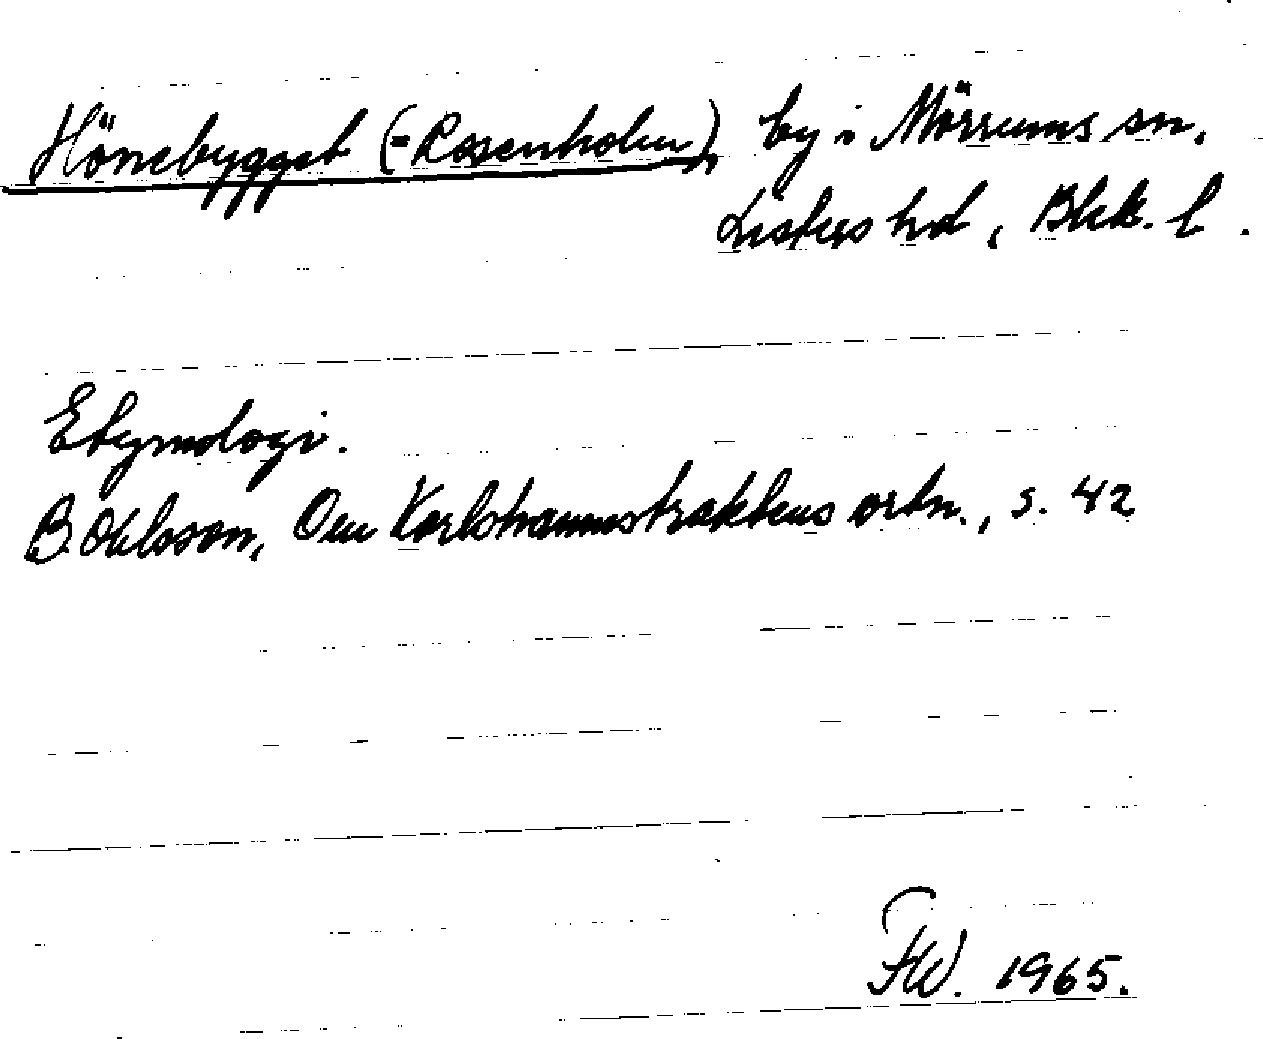 Hönebygget (=Rosenholm), by i Mörrums sn.
Listers hd, Blek. l.
Etymologi.
B. Ohlsson, Om Karlshamnstraktens ortn., s. 42
FW. 1965.